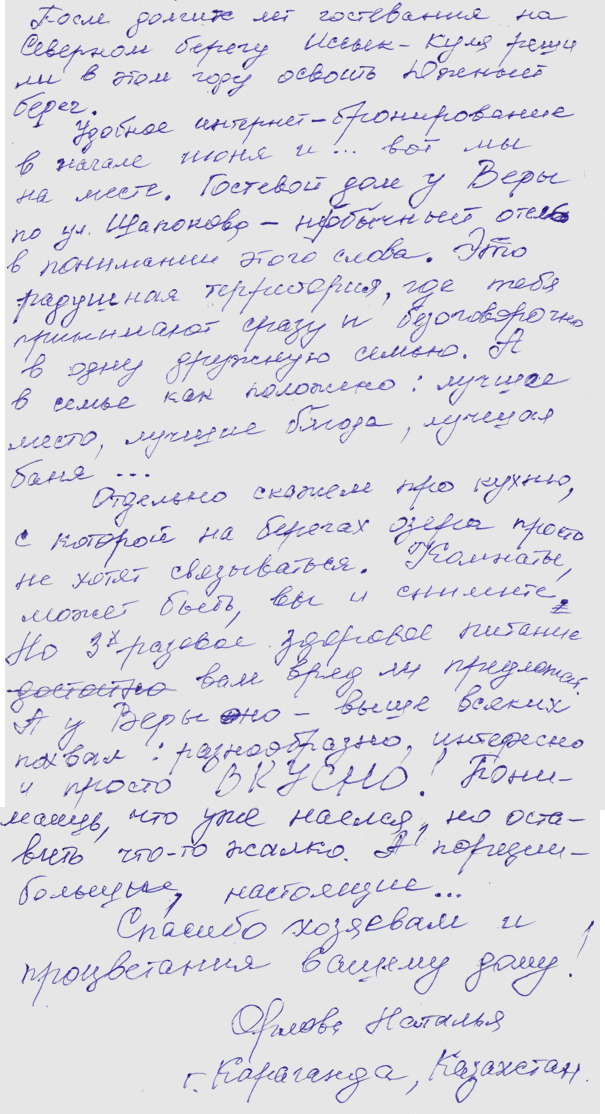 После долгих лет гостевания на
Северном берегу Иссык-Куля реши
ли в этом году освоить Южный
берег.
Удобное интернет-бронирование
в начале июня и ... вот мы
на месте. Гостевой дом у Веры
по ул. Шапокова - необычный отель
в понимании этого слова. Это
радушная территория, где тебя
принимают сразу и безоговорочно
в одну дружную семью. А
в семье как положено: лучшее
место, лучшие блюда, лучшая
баня ...
Отдельно скажем про кухню,
с которой на берегах озера просто
не хотят связываться. Комнаты,
может быть, вы и снимите.
Но 3х разовое здоровое питание
достойно вам вряд ли предложат.
А у Веры оно - выше всяких
похвал: разнообразно, интересно
и просто ВКУСНО! Пони-
маешь, что уже наелся, но оста-
вить что-то жалко. А порции -
большие, настоящие...
Спасибо хозяевам и
процветания вашему дому!
Орлова Наталья
г. Караганда, Казахстан.